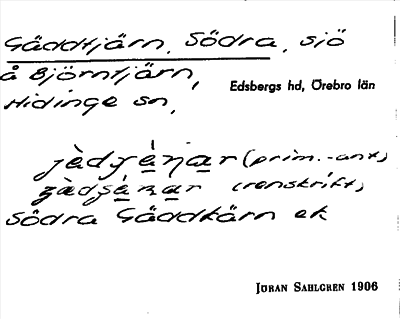 Gäddtjärn, Södra, sjö
å Björntjärn,
Hidinge sn,
Edsbergs hd, Örebro län
(prim.-ant.)
(renskrift)
Södra Gäddtärn ek
Jöran Sahlgren 1906